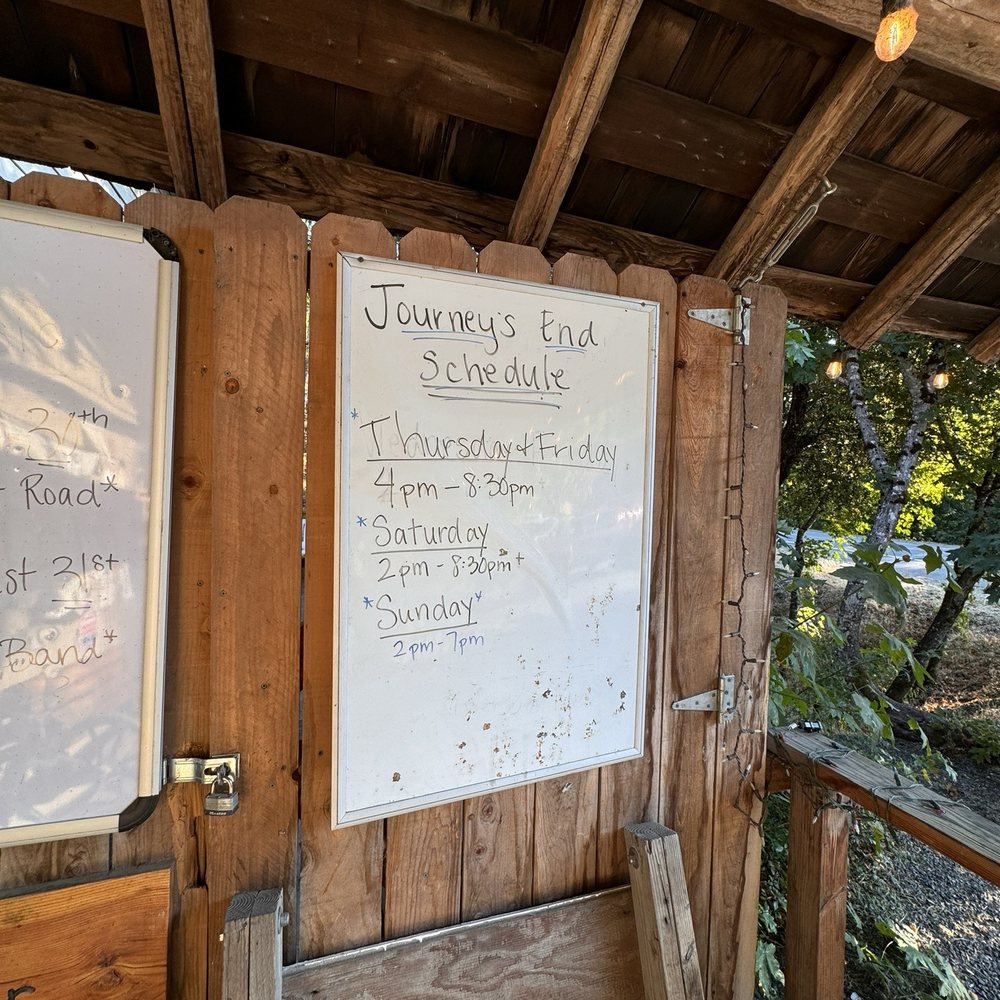 30th
Road*
st 31st
Band*
Journey's End
Schedule
* Thursday + Friday
4pm - 8:30pm
* Saturday
2pm - 8:30pm+
* Sunday*
2pm - 7pm